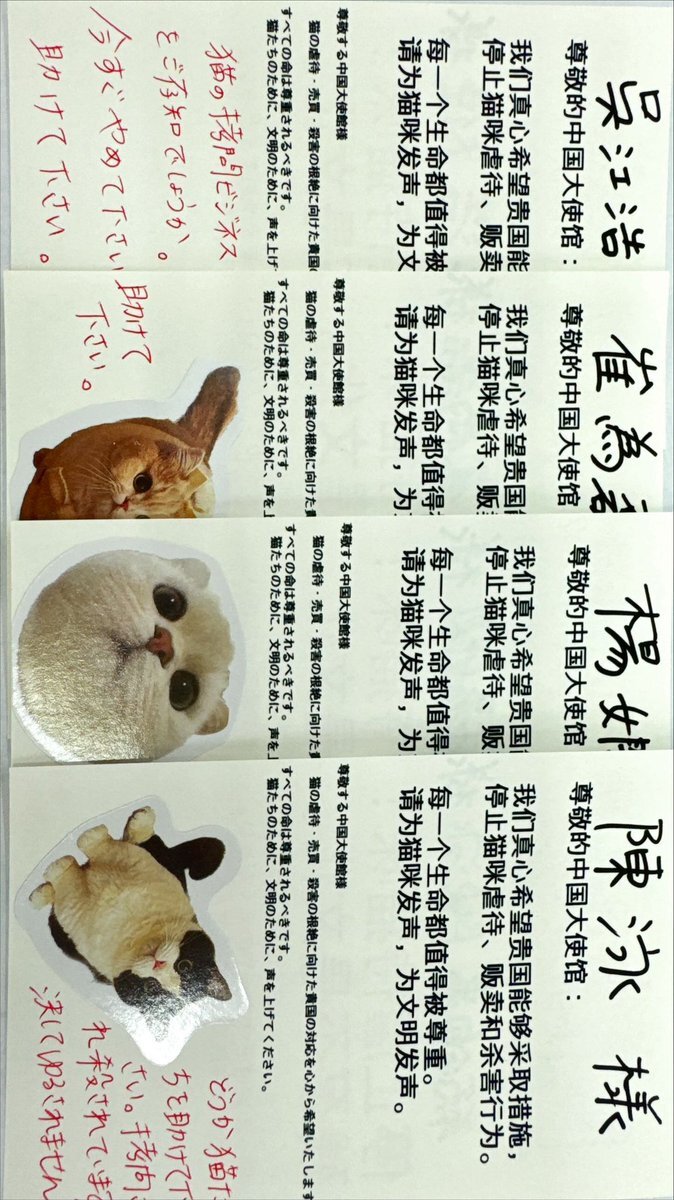 吳江浩
尊敬的中国大使馆：
我们真心希望贵国能
停止猫咪虐待、贩卖
每一个生命都值得被
请为猫咪发声，为文
尊敬する中国大使館様
猫の虐待・売買・殺害の根絶に向けた貴国
すべての命は尊重されるべきです。
猫たちのために、文明のために、声を上げ
猫の拷問ビジネス
をご存知でしょうか。
今すぐやめて下さい
助けて下さい。
崔為
尊敬的中国大使馆
我们真心希望贵国
停止猫咪虐待、贩
每一个生命都值得
请为猫咪发声，为
尊敬する中国大使館様
猫の虐待・売買・殺害の根絶に向けた
すべての命は尊重されるべきです。
猫たちのために、文明のために、声を
助けて
下さい。
楊
尊敬的中国大使馆
我们真心希望贵国
停止猫咪虐待、贩
每一个生命都值得
请为猫咪发声，为
尊敬する中国大使館様
猫の虐待・売買・殺害の根絶に向けた
すべての命は尊重されるべきです。
猫たちのために、文明のために、声を
陳泳 様
尊敬的中国大使馆：
我们真心希望贵国能够采取措施，
停止猫咪虐待、贩卖和杀害行为。
每一个生命都值得被尊重。
请为猫咪发声，为文明发声。
尊敬する中国大使館様
猫の虐待・売買・殺害の根絶に向けた貴国の対応を心から希望いたします
すべての命は尊重されるべきです。
猫たちのために、文明のために、声を上げてください。
どうか猫た
ちを助けて下
さい。拷問
れ殺されていま
決してゆるされません